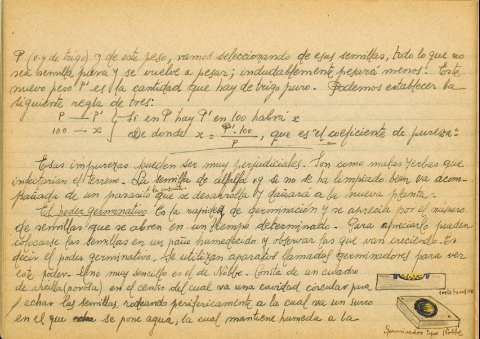 P (v.g de trigo) y de este peso, vamos seleccionando de esas semillas, todo lo que no
sea semilla pura y se vuelve a pesar; indudablemente pesará menos. Este
nuevo peso P' es la cantidad que hay de trigo puro. Podemos establecer la
siguiente regla de tres:
P — P' } Si en P hay P' en 100 habrá x
100 — x } de donde x = P'·100 / P, que es el coeficiente de pureza.
Esas impurezas pueden ser muy perjudiciales. Son como malas yerbas que
infectarían el terreno. La semilla de alfalfa vg si no se ha limpiado bien, va acom-
pañada de un parásito que se desarrolla y dañará a la nueva planta.
El poder germinativo Es la rapidez de germinación y se aprecia por el número
de semillas que se abren en un tiempo determinado. Para apreciarlo pueden
colocarse las semillas en un paño humedecido y observar las que van creciendo. Es
decir el poder germinativo. Se utilizan aparatos llamados germinadores para ver
este poder. Uno muy sencillo es el de Nobbe. Consta de un cuadro
de arcilla (porosa) en el centro del cual va una cavidad circular para
echar las semillas, rodeando perifericamente a la cual va un surco
en el que se pone agua, la cual mantiene humeda a la
Germinador tipo Nobbe